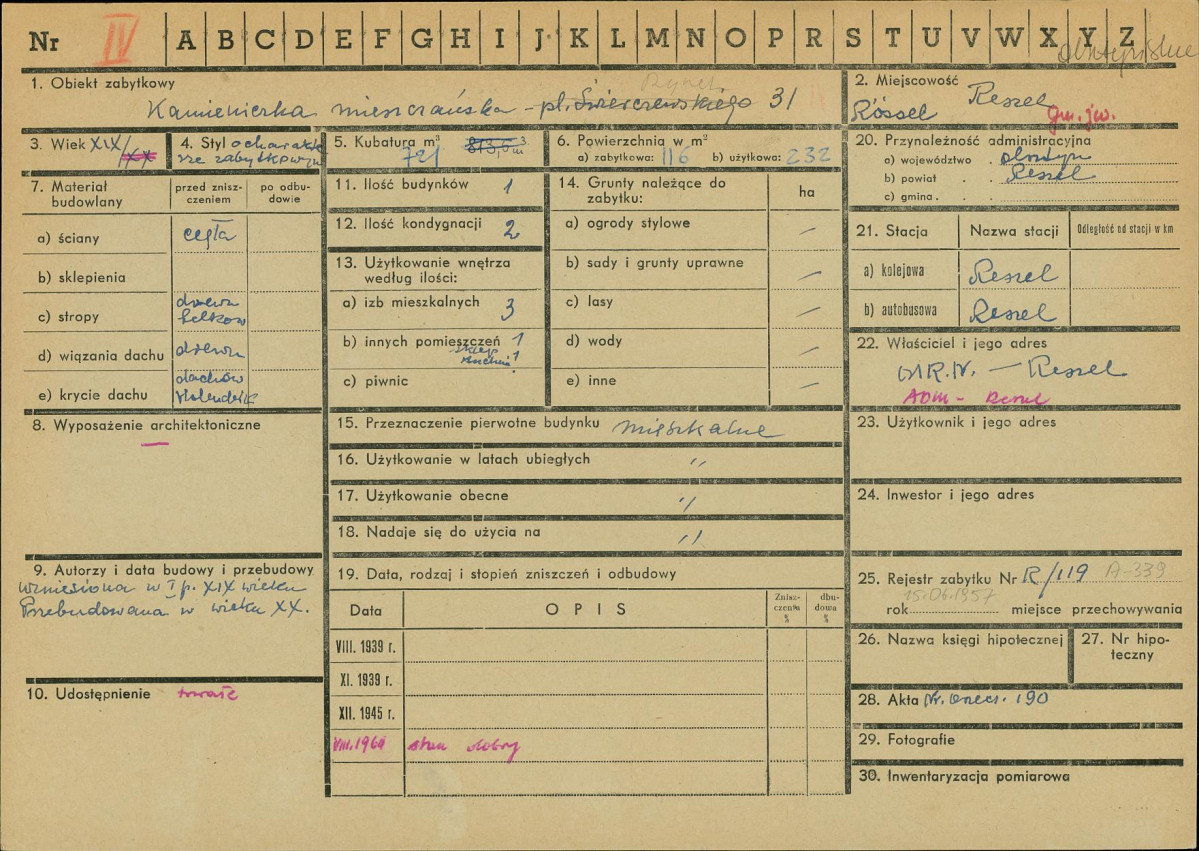 Nr IV A B C D E F G H I J K L M N O P R S T U V W X Y Z
olsztyńskie
1. Obiekt zabytkowy
Rynek
Kamieniczka mieszczańska - pl. Świerczewskiego 31
2. Miejscowość
Reszel
Rössel
gm. jw.
3. Wiek XIX/XX
4. Styl o charakte
rze zabytkowym
5. Kubatura m³ 813,0 m³
721
6. Powierzchnia w m²
a) zabytkowa: 116 b) użytkowa: 232
20. Przynależność administracyjna
a) województwo . olsztyn
b) powiat . . Reszel
c) gmina . .
7. Materiał budowlany
przed znisz-
czeniem
po odbu-
dowie
a) ściany cegła
b) sklepienia
c) stropy drewn
belkow
d) wiązania dachu drewn
e) krycie dachu dachów
Holenderk
8. Wyposażenie architektoniczne
—
9. Autorzy i data budowy i przebudowy
Wzniesiona w I p. XIX wieku
Przebudowana w wieku XX.
10. Udostępnienie trwałe
11. Ilość budynków 1
12. Ilość kondygnacji 2
13. Użytkowanie wnętrza
według ilości:
a) izb mieszkalnych 3
b) innych pomieszczeń 1
sklep
kuchnia 1
c) piwnic
14. Grunty należące do
zabytku:
ha
a) ogrody stylowe —
b) sady i grunty uprawne —
c) lasy —
d) wody —
e) inne —
15. Przeznaczenie pierwotne budynku mieszkalne
16. Użytkowanie w latach ubiegłych "
17. Użytkowanie obecne "
18. Nadaje się do użycia na "
19. Data, rodzaj i stopień zniszczeń i odbudowy
Data
OPIS
Znisz-
czenia
%
dbu-
dowa
%
VIII. 1939 r.
XI. 1939 r.
XII. 1945 r.
VIII.1960 stan dobry
21. Stacja Nazwa stacji Odległość od stacji w km
a) kolejowa Reszel
b) autobusowa Reszel
22. Właściciel i jego adres
M.R.N. — Reszel
ADM - Reszel
23. Użytkownik i jego adres
24. Inwestor i jego adres
25. Rejestr zabytku Nr R/119 A-339
15.06.1957
rok miejsce przechowywania
26. Nazwa księgi hipotecznej
27. Nr hipo-
teczny
28. Akta Nr. 190
29. Fotografie
30. Inwentaryzacja pomiarowa